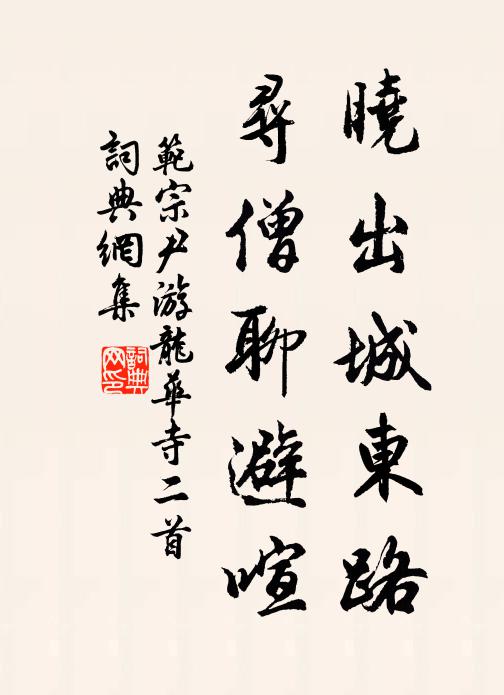 曉出城東路
尋僧聊避喧
範宗尹游龍華寺二首
詞典網集
詞典網印